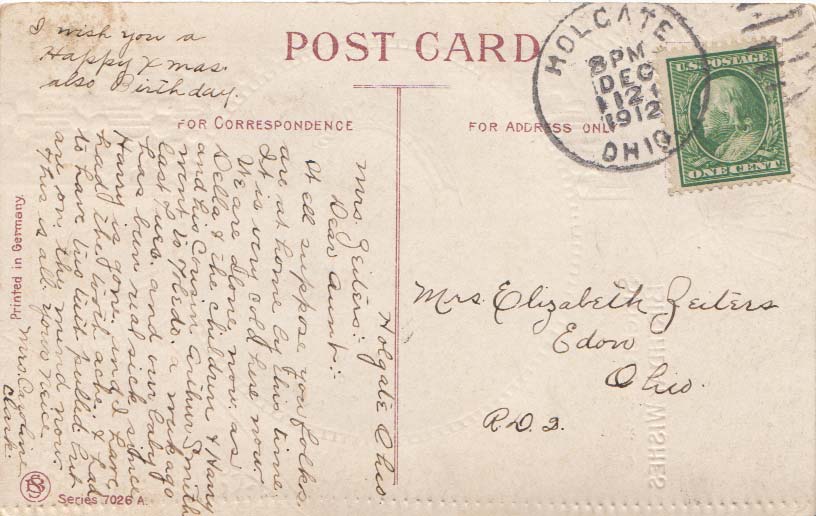 I wish you a
Happy Xmas.
also Birthday.
POST CARD
FOR CORRESPONDENCE
FOR ADDRESS ONLY
HOLGATE
8 PM
DEC
12
1912
OHIO
U.S. POSTAGE
ONE CENT
Mrs. Elizabeth Zeiters
Edon
Ohio.
R.D. 2.
Holgate Ohio.
Mrs. Zeiters:-
Dear Aunt:-
Well suppose you folks
are at home by this time.
It is very cold here now
We are alone now, as
Della & the children & Harry
and his cousin Arthur Smith
went to Toledo. a week ago
last Tues. and our baby
has been real sick since
Harry is gone, and I have
had the tooth ache, & had
to have two teeth pulled but
are on the mend now.
This is all your niece
Mrs. Caroline
Clark.
Printed in Germany.
Series 7026 A.
WISHES